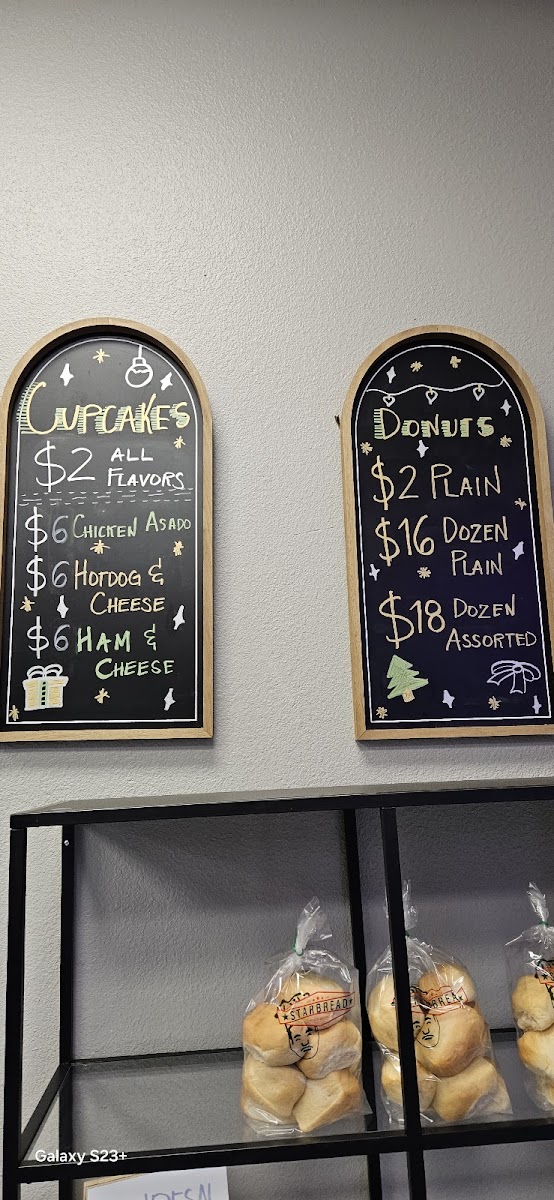 CUPCAKES
$2 ALL
FLAVORS
$6 CHICKEN ASADO
$6 HOTDOG &
CHEESE
$6 HAM &
CHEESE
DONUTS
$2 PLAIN
$16 DOZEN
PLAIN
$18 DOZEN
ASSORTED
STARBREAD
Galaxy S23+